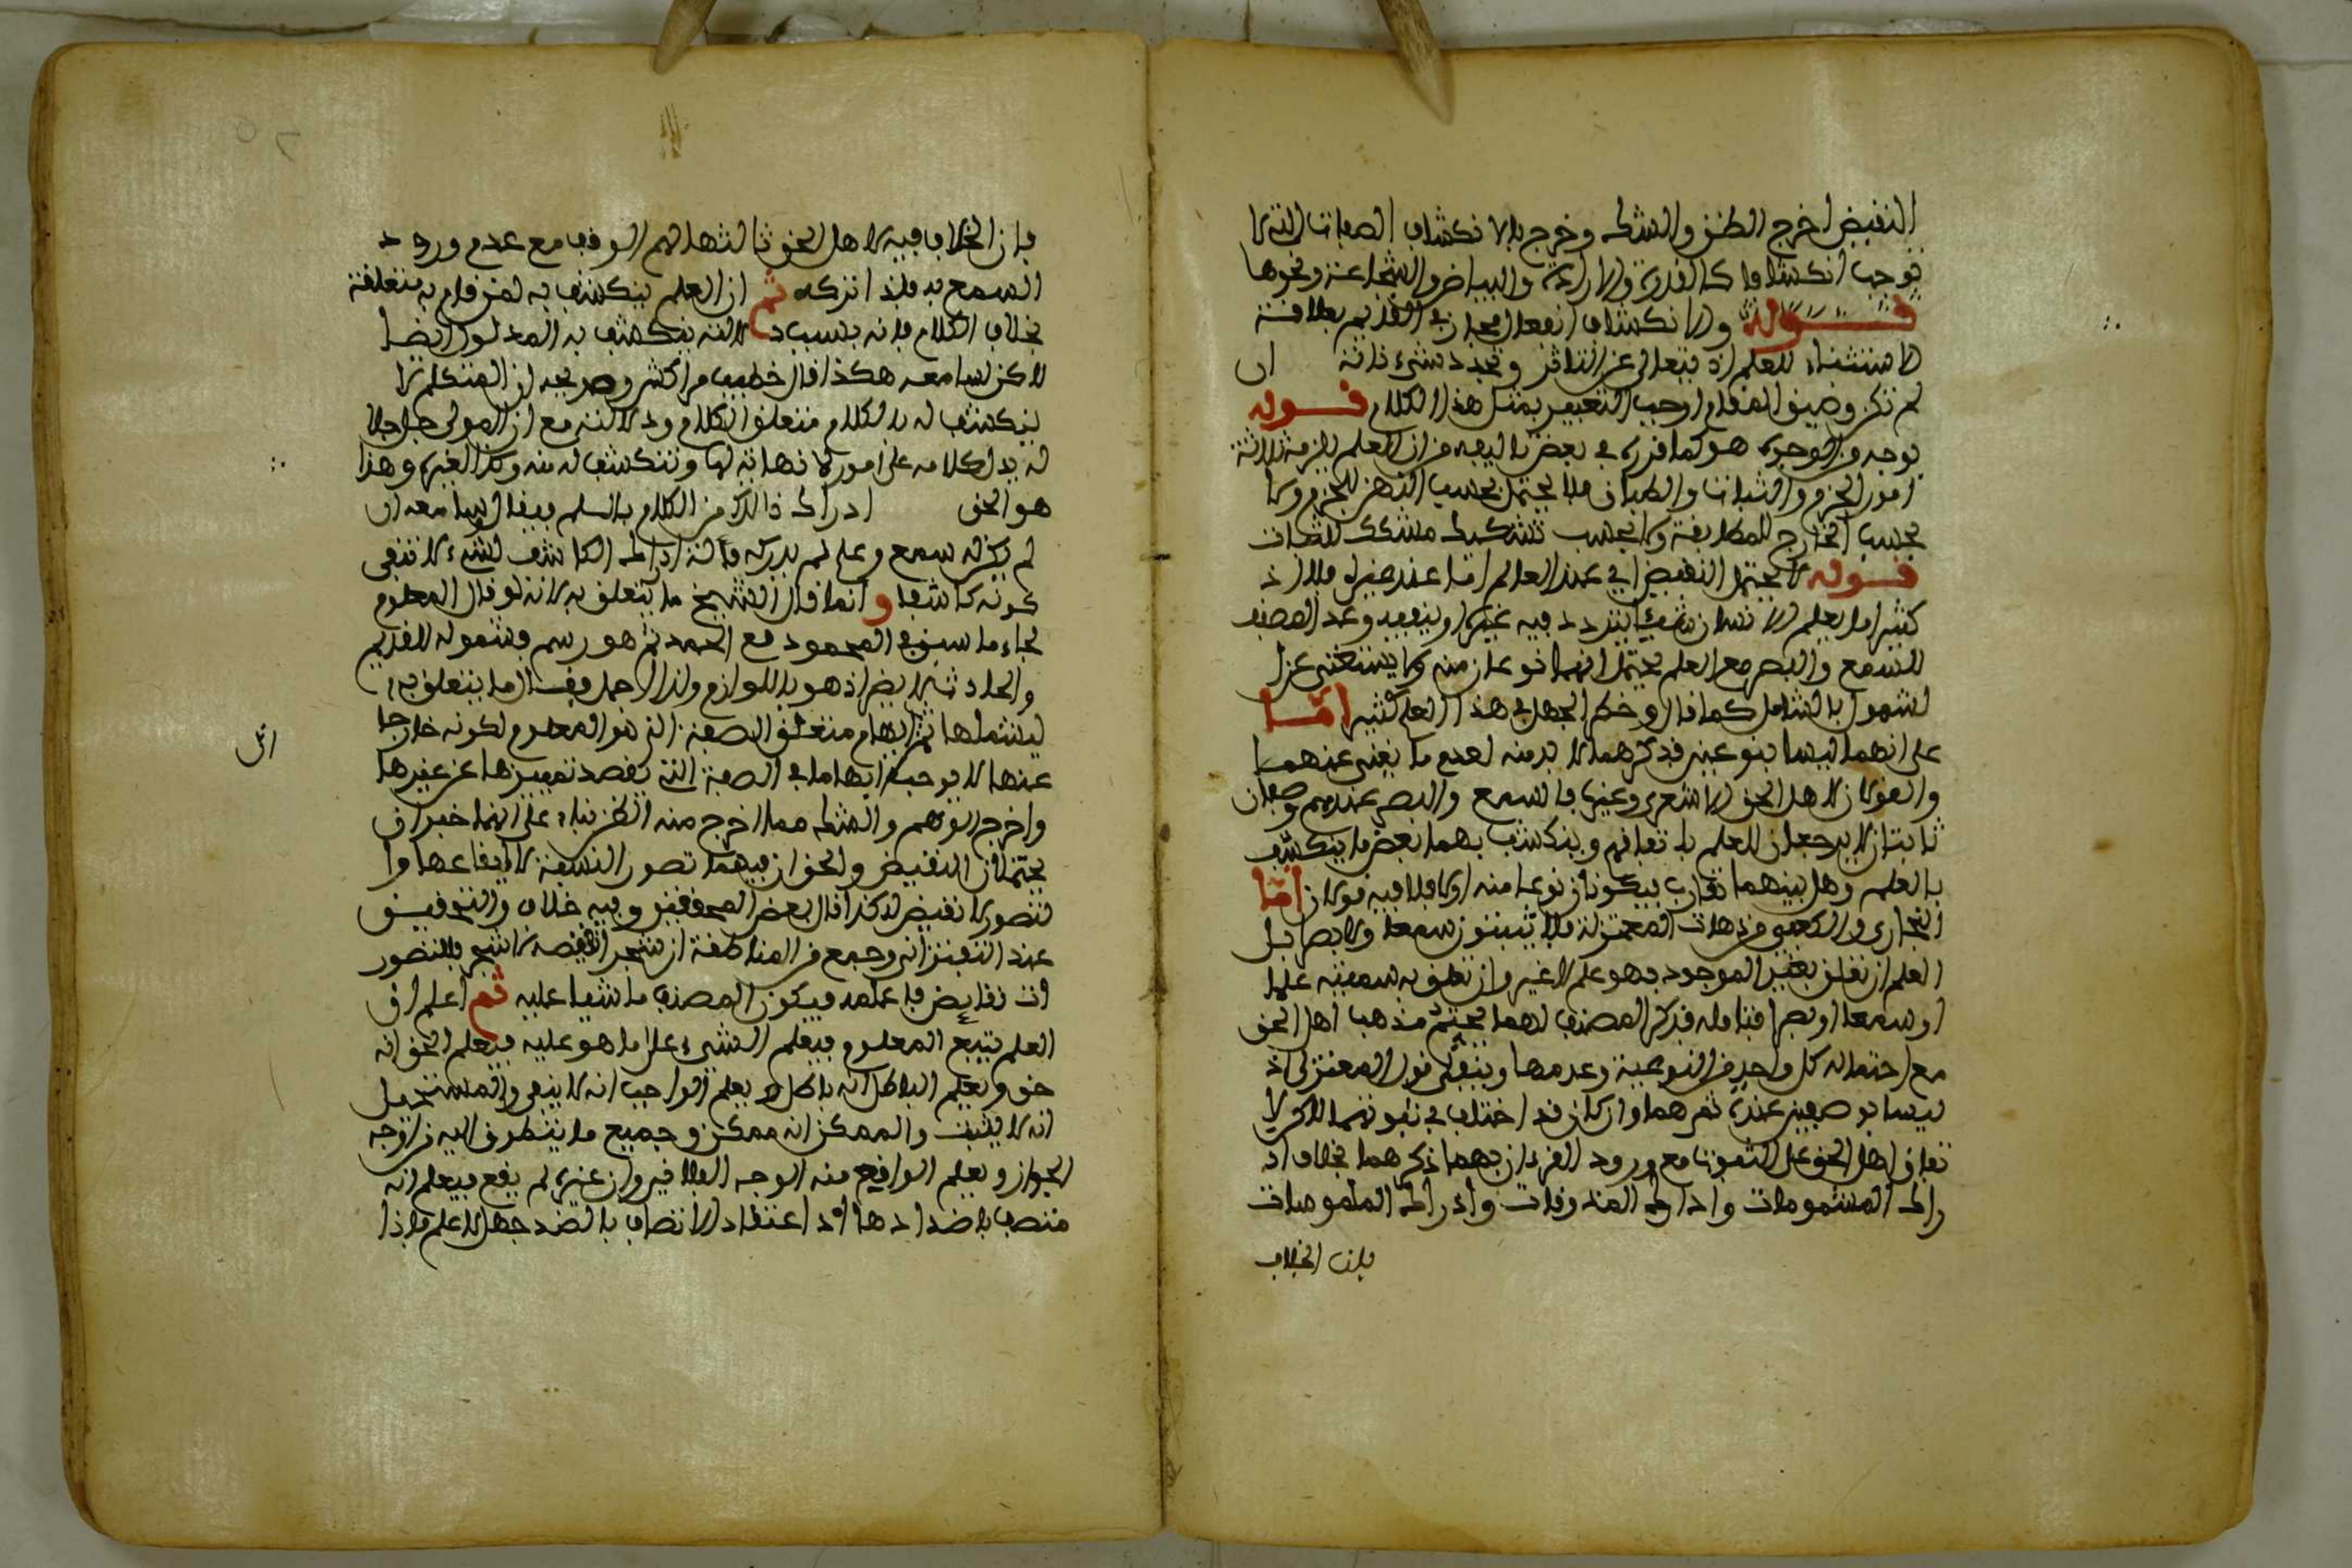 النقيض اخرج الظن والشك وخرج بالانكشاف الصفات التي لا
توجب انكشافا كالقدرة والارادة والبياض والشجاعة ونحوها
قوله والانكشاف انفعال مجاز في القديم بعلاقة
الاستثناء للعلم اذ يتعالى عن التاثر وتجدد شيء ذاته ان
لم تكن وضيق المقام اوجب التعبير بمثل هذا الكلام قوله
بوجه من الوجوه هو كما قرره في بعض تاليفه من ان العلم يلزمه ثلاثة
امور الجزم والثبات والطباق فلا يحتمل بحسب الذهن للجزم ولا
بحسب الخارج للمطابقة ولا بحسب تشكيك مشكك للثبات
قوله لا يحتمل النقيض اي عند العالم اما عند غيره فلا اذ
كثيرا ما يعلم الانسان شيئا يتردد فيه غيره او ينفيه وعد المصنف
للسمع والبصر مع العلم يحتمل انهما نوعان منه ولا يستغنى عن ا
لشمول بالشامل كما قال وخطر الجهل في هذا العلم كثير اما
على انهما ليسا بنوعين فذكرهما لا بد منه لعدم ما يغني عنهما
والقولان لاهل الحق الاشعري وغيره فالسمع والبصر عندهم وصفان
ثابتان لا يرجعان للعلم باتفاقهم وينكشف بهما بعض ما ينكشف
بالعلم وهل بينهما تقارب فيكونان نوعا منه او لا فلا فيه قولان اما
النجاري والكعبي من ذهات المعتزلة فلا يثبتون سمعا ولا بصرا بل
العلم ان تعلق بغير الموجود فهو علم لا غير وان تعلق به سميته علما
او سمعا او بصرا فتامله فذكر المصنف لهما يحتم مذهب اهل الحق
مع احتماله كل واحد من النوعية وعدمها وينفي قول المعتزلي اذ
ليسا بوصفين عنده ثم هما وان كان قد اختلف في ثبوتهما للاكن لا
تفاق اهل الحق على الثبوت مع ورود القرءان بهما ذكرهما بخلاف اد
راك المشمومات وادراك المذوقات وادراك الملموسات
فان الخلاف
فان الخلاف فيه لاهل الحق ثالثها لهم الوقف مع عدم ورود
السمع به فلذا تركه ثم ان العلم ينكشف به لمن قام به متعلقه
بخلاف الكلام فانه بسبب دلالته ينكشف به المدلول ايضا
لاكن لسامعه هكذا قال خطيب مراكش وصريحه ان المتكلم لا
ينكشف له بالكلام متعلق الكلام ودلالته مع ان المولى جل جلا
له يدل كلامه على امور لا نهاية لها وتنكشف له منه وكذا لغيره وهذا
هو الحق ادراك ذالك من الكلام بالسلم فيقال لسامعه ان
لم يكن له سمع وعلم لم يدركه فالة ادراك الكاشف لشيء لا تنفي
كونه كاشفا وانما قال الشيخ ما يتعلق به لانه لو قال المعلوم
لجاء ما سبق في المحمود مع الحمد ثم هو رسم فشموله للقديم
والحادث لا يضر اذ هو باللوازم ولذا لاجمل فقال ما يتعلق به
ليشملها ثم ابهام متعلق الصفة الذي هو المعلوم لكونه خارجا
عنها لا يوجب ابهاما في الصفة التي يقصد تمييزها عن غيرها
واخرج الوهم والشك مما اخرج منه الظن بناء على انهما خبران
يحتملان النقيض والحق ان فيهما تصور النسبة لا ايقاعها ولا
لتصور لا نقيض له كذا قال بعض المحققين وفيه خلاف والتحقيق
عند التفتزاني وجمع من المناطقة ان شجر النقيصه لا شيء فللتصور
ات نقايض فاعلمه فيكون المصنف ماشيا عليه ثم اعلم ان
العلم يتبع المعلوم فيعلم الشيء على ما هو عليه فيعلم الحق انه
حق ويعلم الباطل انه باطل ويعلم الواجب انه لا ينفى والمستحيل
انه لا يثبت والممكن انه ممكن وجميع ما يتطرق اليه من اوجه
الجواز ويعلم الواقع منه الوجه الفلاني وان غيره لم يقع فيعلم انه
متصف باضدادها اذ اعتقاد الاتصاف بالضد جهل لا علم فاذا